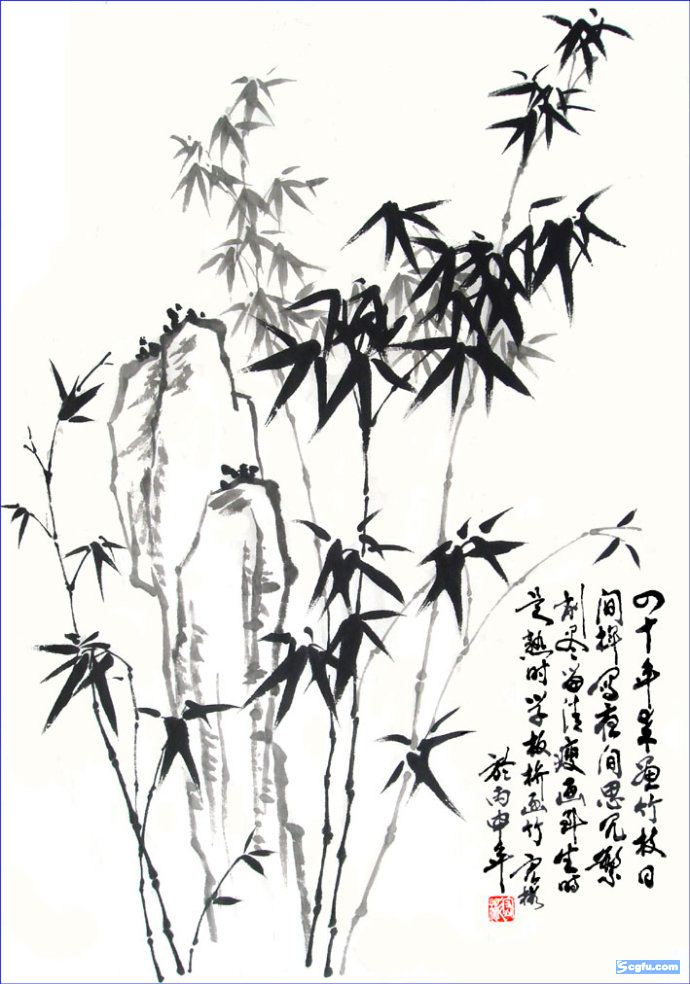 四十年来画竹枝日
间挥写夜间思冗繁
削尽留清瘦画到生时
是熟时学板桥画竹
於丙申年
cgfu.com